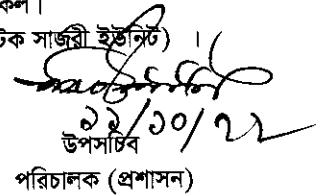 কল।
টিক সার্জারী ইউনিট) । (
১১/১০/২২
উপসচিব
পরিচালক (প্রশাসন)